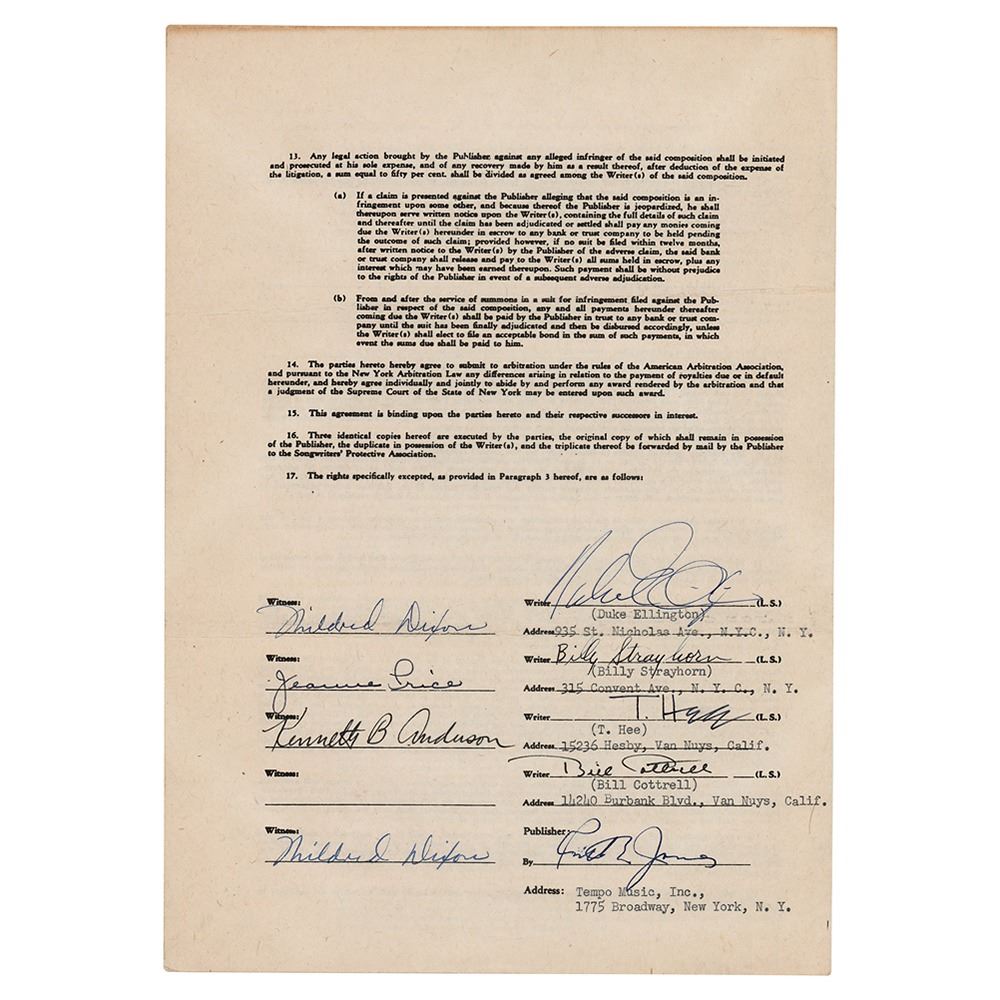 13. Any legal action brought by the Publisher against any alleged infringer of the said composition shall be initiated
and prosecuted at his sole expense, and of any recovery made by him as a result thereof, after deduction of the expense of
the litigation, a sum equal to fifty per cent. shall be divided as agreed among the Writer(s) of the said composition.
(a) If a claim is presented against the Publisher alleging that the said composition is an in-
fringement upon some other, and because thereof the Publisher is jeopardized, he shall
thereupon serve written notice upon the Writer(s), containing the full details of such claim
and thereafter until the claim has been adjudicated or settled shall pay any monies coming
due the Writer(s) hereunder in escrow to any bank or trust company to be held pending
the outcome of such claim; provided however, if no suit be filed within twelve months,
after written notice to the Writer(s) by the Publisher of the adverse claim, the said bank
or trust company shall release and pay to the Writer(s) all sums held in escrow, plus any
interest which may have been earned thereupon. Such payment shall be without prejudice
to the rights of the Publisher in event of a subsequent adverse adjudication.
(b) From and after the service of summons in a suit for infringement filed against the Pub-
lisher in respect of the said composition, any and all payments hereunder thereafter
coming due the Writer(s) shall be paid by the Publisher in trust to any bank or trust com-
pany until the suit has been finally adjudicated and then be disbursed accordingly, unless
the Writer(s) shall elect to file an acceptable bond in the sum of such payments, in which
event the sums due shall be paid to him.
14. The parties hereto hereby agree to submit to arbitration under the rules of the American Arbitration Association,
and pursuant to the New York Arbitration Law any differences arising in relation to the payment of royalties due or in default
hereunder, and hereby agree individually and jointly to abide by and perform any award rendered by the arbitration and that
a judgment of the Supreme Court of the State of New York may be entered upon such award.
15. This agreement is binding upon the parties hereto and their respective successors in interest.
16. Three identical copies hereof are executed by the parties, the original copy of which shall remain in possession
of the Publisher, the duplicate in possession of the Writer(s), and the triplicate thereof be forwarded by mail by the Publisher
to the Songwriters' Protective Association.
17. The rights specifically excepted, as provided in Paragraph 3 hereof, are as follows:
Witness: Writer (L. S.)
Mildred Dixon (Duke Ellington)
Address 935 St. Nicholas Ave., N.Y.C., N. Y.
Witness: Writer Billy Strayhorn (L. S.)
Jeanne Price (Billy Strayhorn)
Address 315 Convent Ave., N. Y. C., N. Y.
Witness: Writer T. Hee (L. S.)
Kenneth B Anderson (T. Hee)
Address 15236 Hesby, Van Nuys, Calif.
Witness: Writer Bill Cottrell (L. S.)
(Bill Cottrell)
Address 14240 Burbank Blvd., Van Nuys, Calif.
Witness: Publisher:
Mildred Dixon By Jones
Address: Tempo Music, Inc.,
1775 Broadway, New York, N. Y.